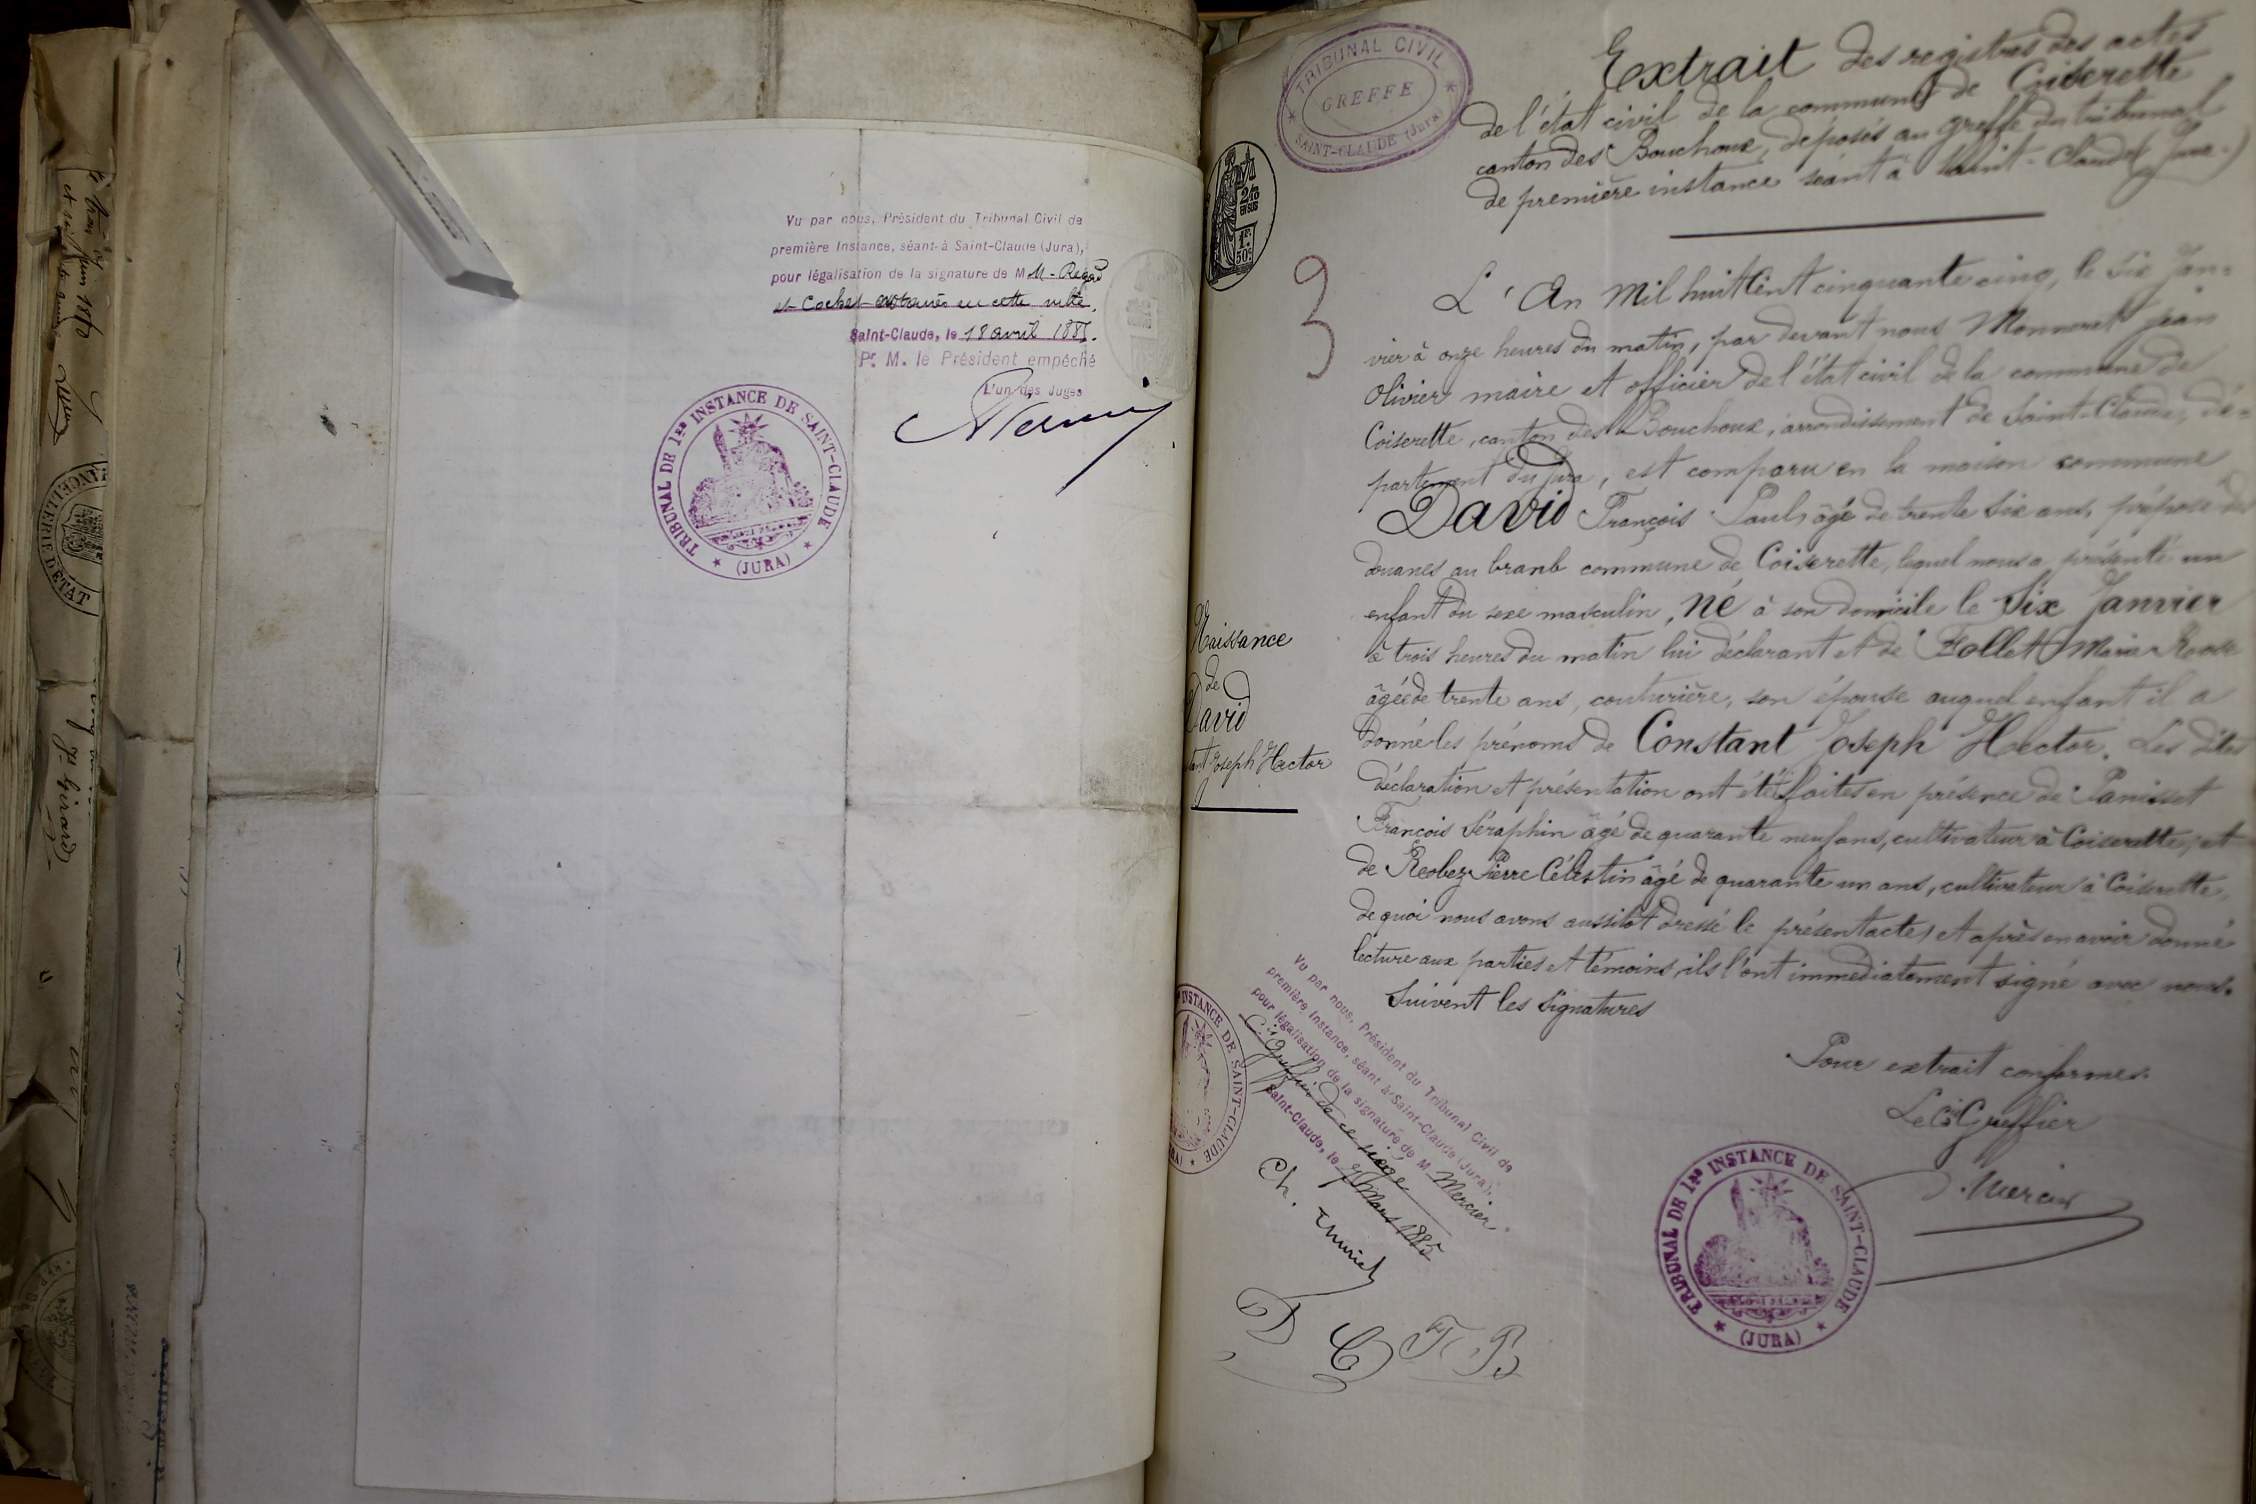 Vu par nous, Président du Tribunal Civil de
première Instance, séant à Saint-Claude (Jura),
pour légalisation de la signature de M M. Regad
et Cochet notaires en cette ville.
Saint-Claude, le 18 avril 1885.
Pr. M. le Président empêché
L'un des Juges
TRIBUNAL DE 1re INSTANCE DE SAINT-CLAUDE
(JURA)
CHANCELLERIE D'ÉTAT
TRIBUNAL CIVIL
GREFFE
SAINT-CLAUDE (Jura)
2/10
EN SUS
1F.
50c
3
Extrait des registres des actes
de l'état civil de la commune de Coiserette
canton des Bouchoux, déposés au greffe du tribunal
de première instance séant à Saint-Claude (Jura)
L'An Mil huit cent cinquante cinq, le six Jan-
vier à onze heures du matin, par devant nous Monneret Jean
Olivier maire et officier de l'état civil de la commune de
Coiserette, canton des Bouchoux, arrondissement de Saint-Claude, dé-
partement du Jura, est comparu en la maison commune
David François Paul, âgé de trente six ans, préposé des
douanes au commune de Coiserette, lequel nous a présenté un
enfant du sexe masculin, né à son domicile le Six Janvier
à trois heures du matin lui déclarant et de Follet Marie
âgée de trente ans, couturière, son épouse auquel enfant il a
donné les prénoms de Constant Joseph Hector. Les dites
déclaration et présentation ont été faites en présence de Panisset
François Séraphin âgé de quarante neuf ans, cultivateur à Coiserette, et
de Reobez Pierre Célestin âgé de quarante un ans, cultivateur à Coiserette,
de quoi nous avons aussitôt dressé le présent acte, et après en avoir donné
lecture aux parties et témoins, ils l'ont immédiatement signé avec nous.
Suivent les signatures
Naissance
de
David
Joseph Hector
Pour extrait conforme.
Le Cis Greffier
Mercier
TRIBUNAL DE 1re INSTANCE DE SAINT-CLAUDE
(JURA)
INSTANCE DE SAINT-CLAUDE
Vu par nous, Président du Tribunal Civil de
première Instance, séant à Saint-Claude (Jura),
pour légalisation de la signature de M Mercier
Cis Greffier de ce siège
Saint-Claude, le 7 Mars 1885